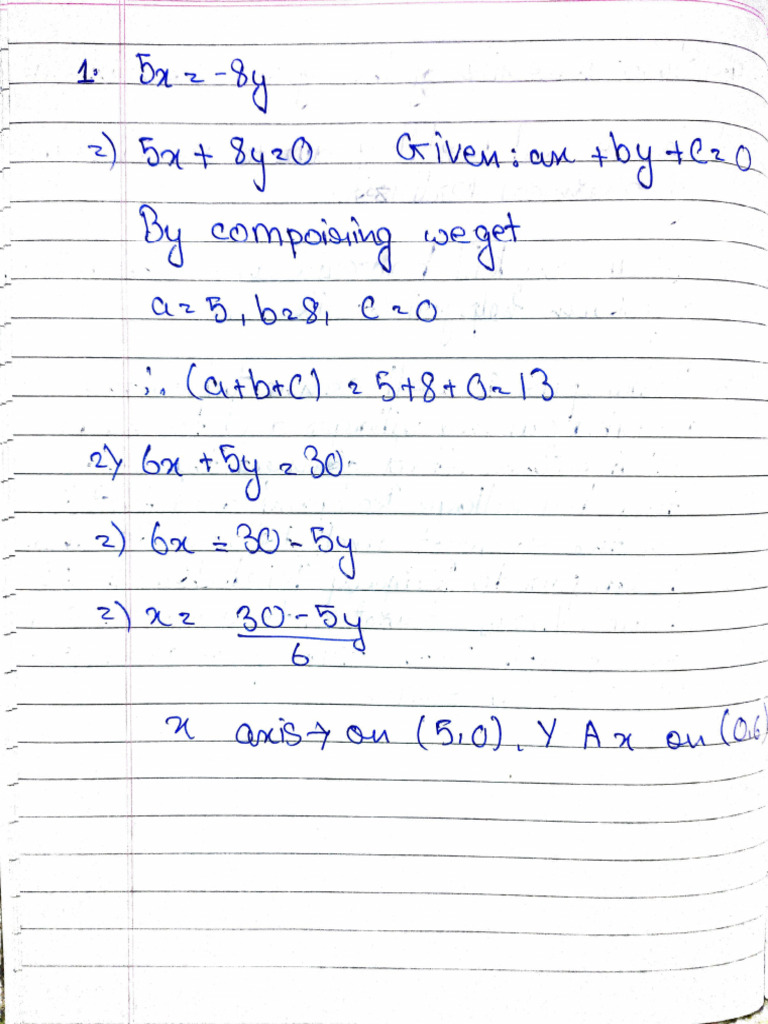 1. 5x = -8y
=) 5x + 8y = 0 Given: ax + by + c = 0
By compoising we get
a = 5, b = 8, c = 0
∴ (a+b+c) = 5+8+0 = 13
2) 6x + 5y = 30
=) 6x = 30 - 5y
=) x = 30 - 5y
6
x axis → on (5,0). Y A x on (0,6)